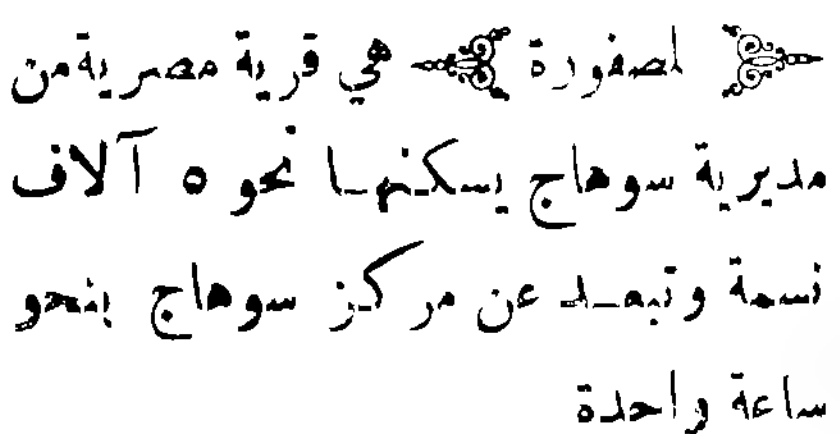 لصفورة هي قرية مصرية من
مديرية سوهاج يسكنها نحو ٥ آلاف
نسمة وتبعد عن مركز سوهاج بنحو
ساعة واحدة